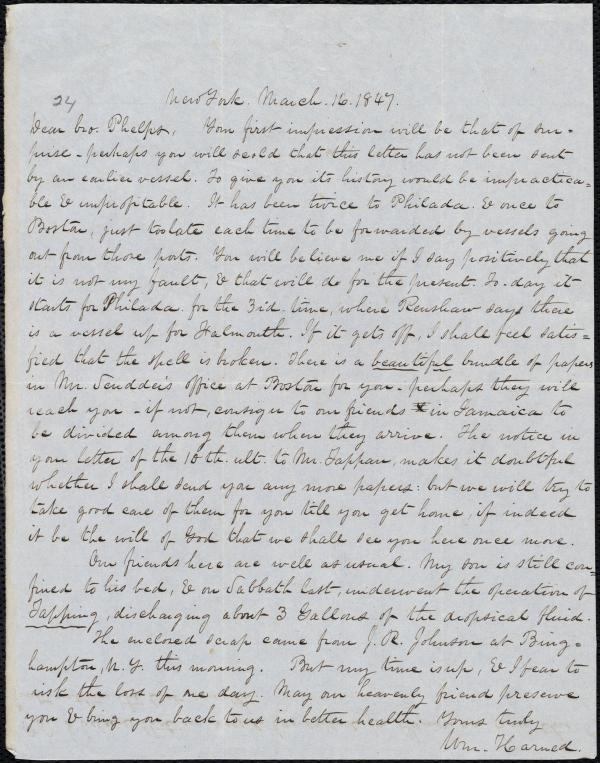 24
New York. March. 16. 1847.
Dear bro. Phelps, Your first impression will be that of sur-
prise - perhaps you will scold that this letter has not been sent
by an earlier vessel. To give you its history would be impractica-
ble & unprofitable. It has been twice to Philada. & once to
Boston, just too late each time to be forwarded by vessels going
out from those ports. You will believe me if I say positively that
it is not my fault, & that will do for the present. To-day it
starts for Philada. for the 3id. time, where Renshaw says there
is a vessel up for Falmouth. If it gets off, I shall feel satis=
fied that the spell is broken. There is a beautiful bundle of papers
in Mr. Scudder's office at Boston for you - perhaps they will
reach you - if not, consign to our friends in Jamaica to
be divided among them when they arrive. The notice in
your letter of the 10th. ult. to Mr. Tappan, makes it doubtful
whether I shall send you any more papers: but we will try to
take good care of them for you till you get home, if indeed
it be the will of God that we shall see you here once more.
Our friends here are well as usual. My son is still con=
fined to his bed, & on Sabbath last, underwent the operation of
Tapping, discharging about 3 Gallons of the dropsical fluid.
The enclosed scrap came from J. R. Johnson at Bing=
hampton, N. Y. this morning. But my time is up, & I fear to
risk the loss of one day. May our heavenly friend preserve
you & bring you back to us in better health. Yours truly
Wm. Harned.